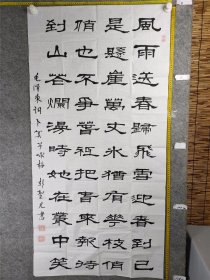 風雨送春歸飛雪迎春到已
是懸崖萬丈冰猶有花枝俏
俏也不爭春祇把春來報待
到山花爛漫時她在叢中笑
毛澤東詞卜算子咏梅